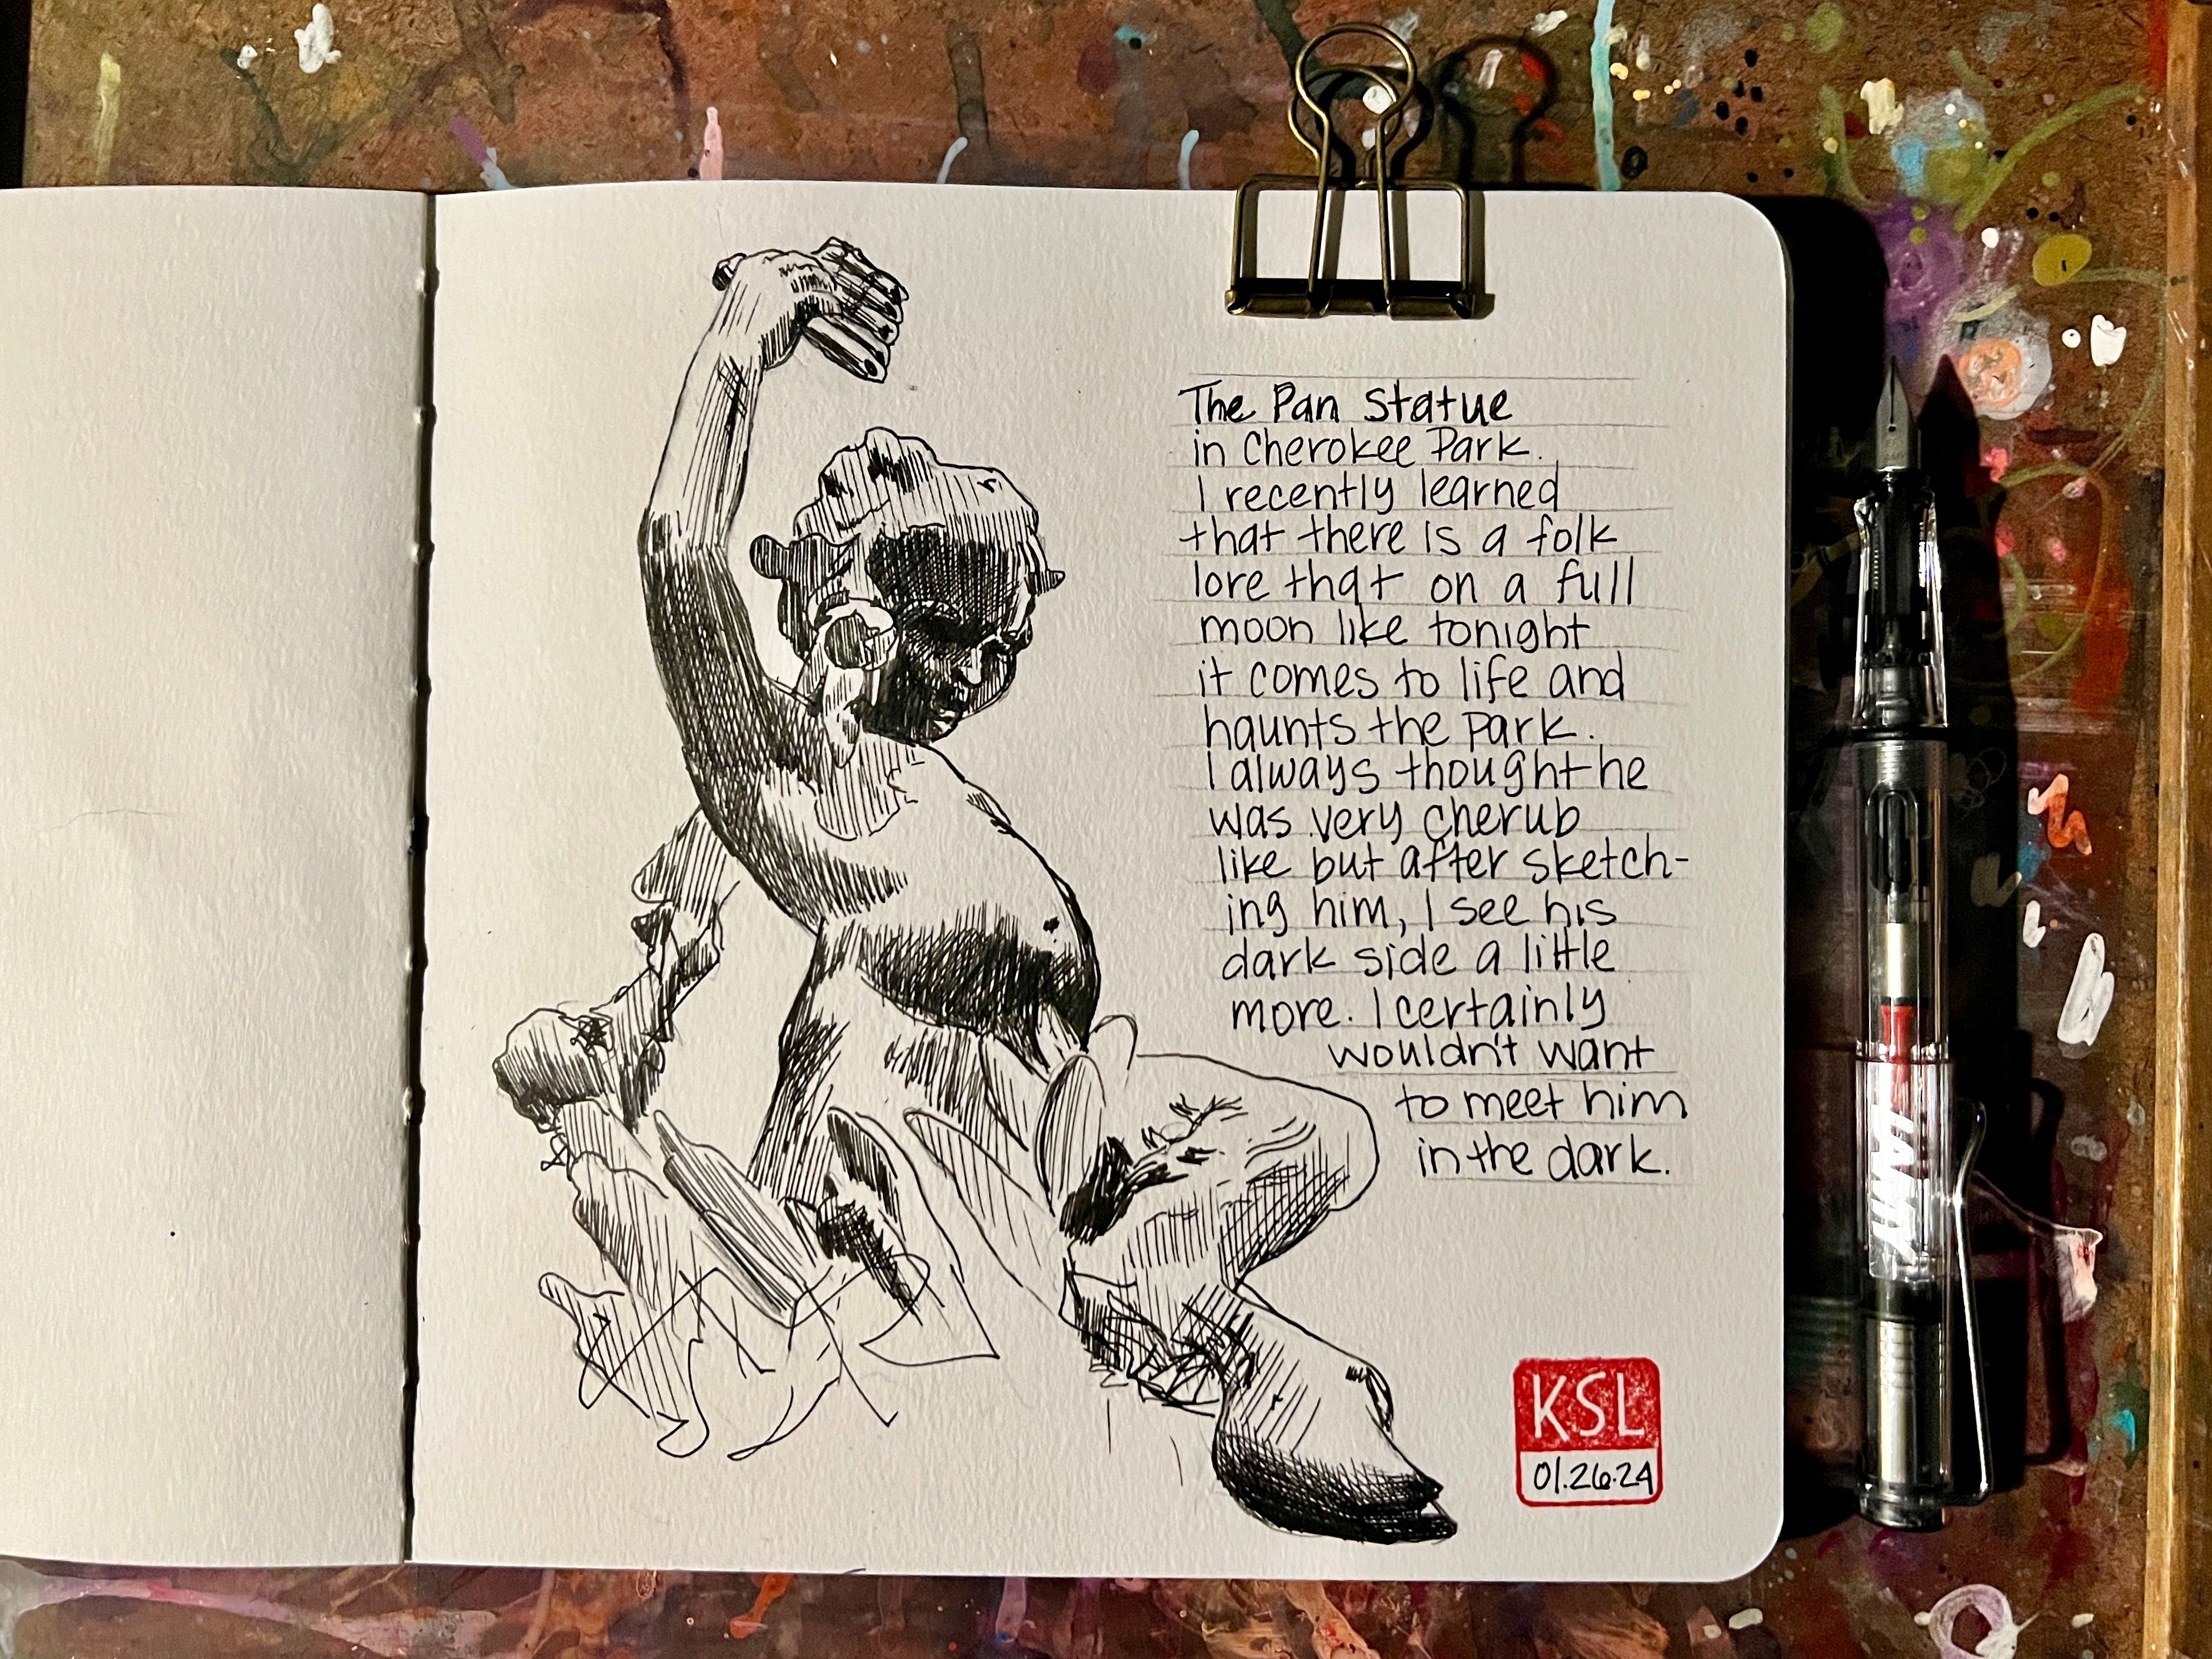 The Pan Statue
in Cherokee Park.
I recently learned
that there is a folk
lore that on a full
moon like tonight
it comes to life and
haunts the park.
I always thought he
was very cherub
like but after sketch-
ing him, I see his
dark side a little
more. I certainly
wouldn't want
to meet him
in the dark.
KSL
01.26.24
LAMY